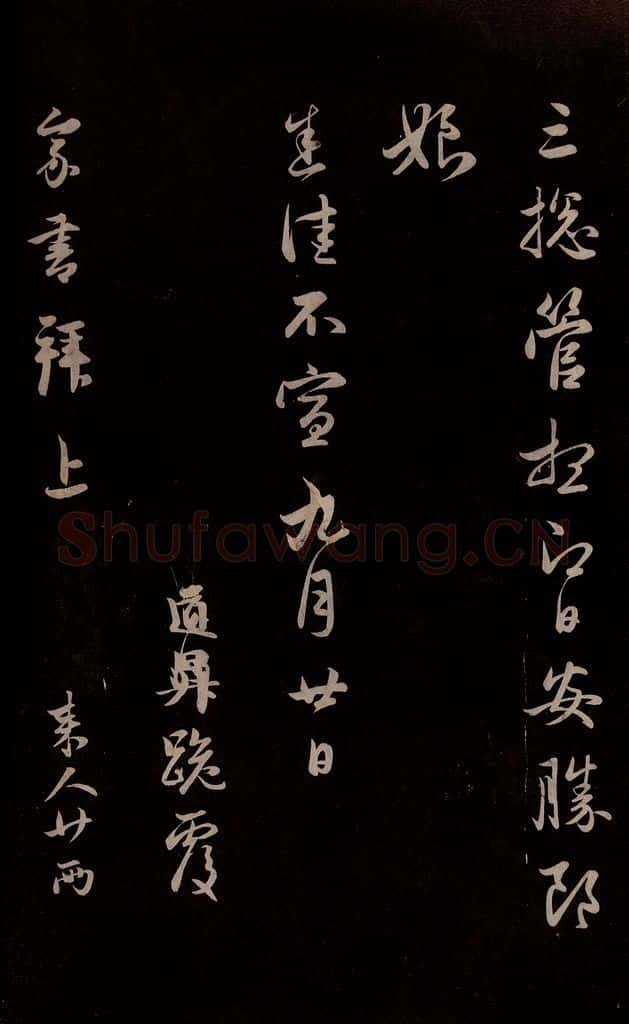 三揔管日安勝郎
娘
佳不宣九月廿日
道昇跪覆
家書拜上
来人廿両
Shufawang.CN